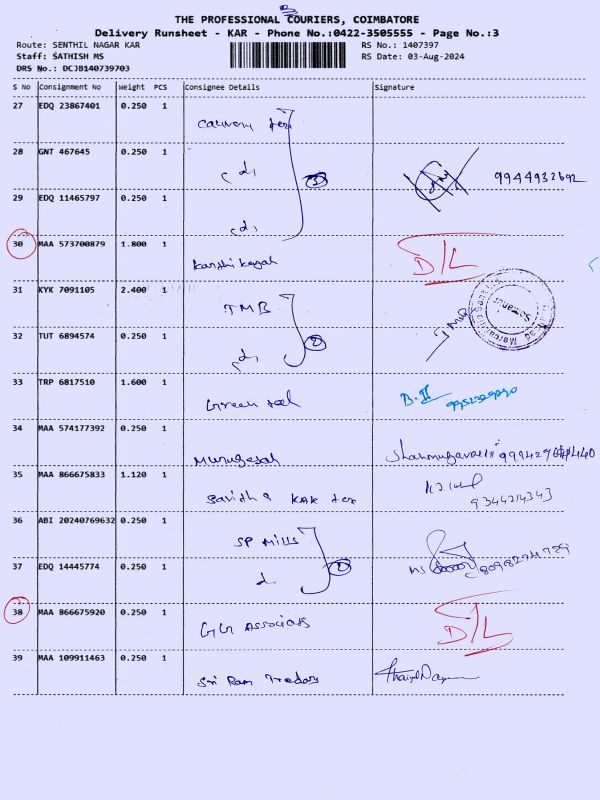 THE PROFESSIONAL COURIERS, COIMBATORE
Delivery Runsheet - KAR - Phone No.:0422-3505555 - Page No.:3
Route: SENTHIL NAGAR KAR RS No.: 1407397
Staff: SATHISH MS RS Date: 03-Aug-2024
DRS No.: DCJB140739703
S No Consignment No Weight PCS Consignee Details Signature
27 EDQ 23867401 0.250 1
28 GNT 467645 0.250 1
29 EDQ 11465797 0.250 1
30 MAA 573700879 1.800 1 D/L
31 KYK 7091105 2.400 1 TMB
32 TUT 6894574 0.250 1 TMB
33 TRP 6817510 1.600 1 Green
34 MAA 574177392 0.250 1 Murugesan
35 MAA 866675833 1.120 1 KAR tex 9344214343
36 ABI 20240769632 0.250 1 SP Mills
37 EDQ 14445774 0.250 1
38 MAA 866675920 0.250 1 GG Associats D/L
39 MAA 109911463 0.250 1 Sri Ram Tredars